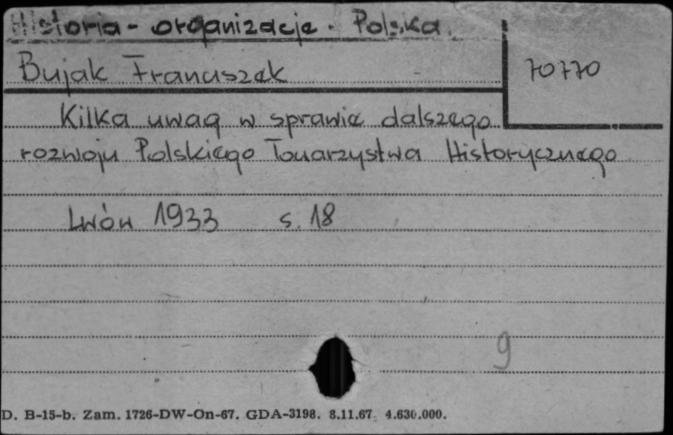 Historia - organizacje. Polska.
Bujak Franciszek
70770
Kilka uwag w sprawie dalszego
rozwoju Polskiego Towarzystwa Historycznego
Lwów 1933 s. 18
9
D. B-15-b. Zam. 1726-DW-On-67. GDA-3198. 8.11.67. 4.630.000.